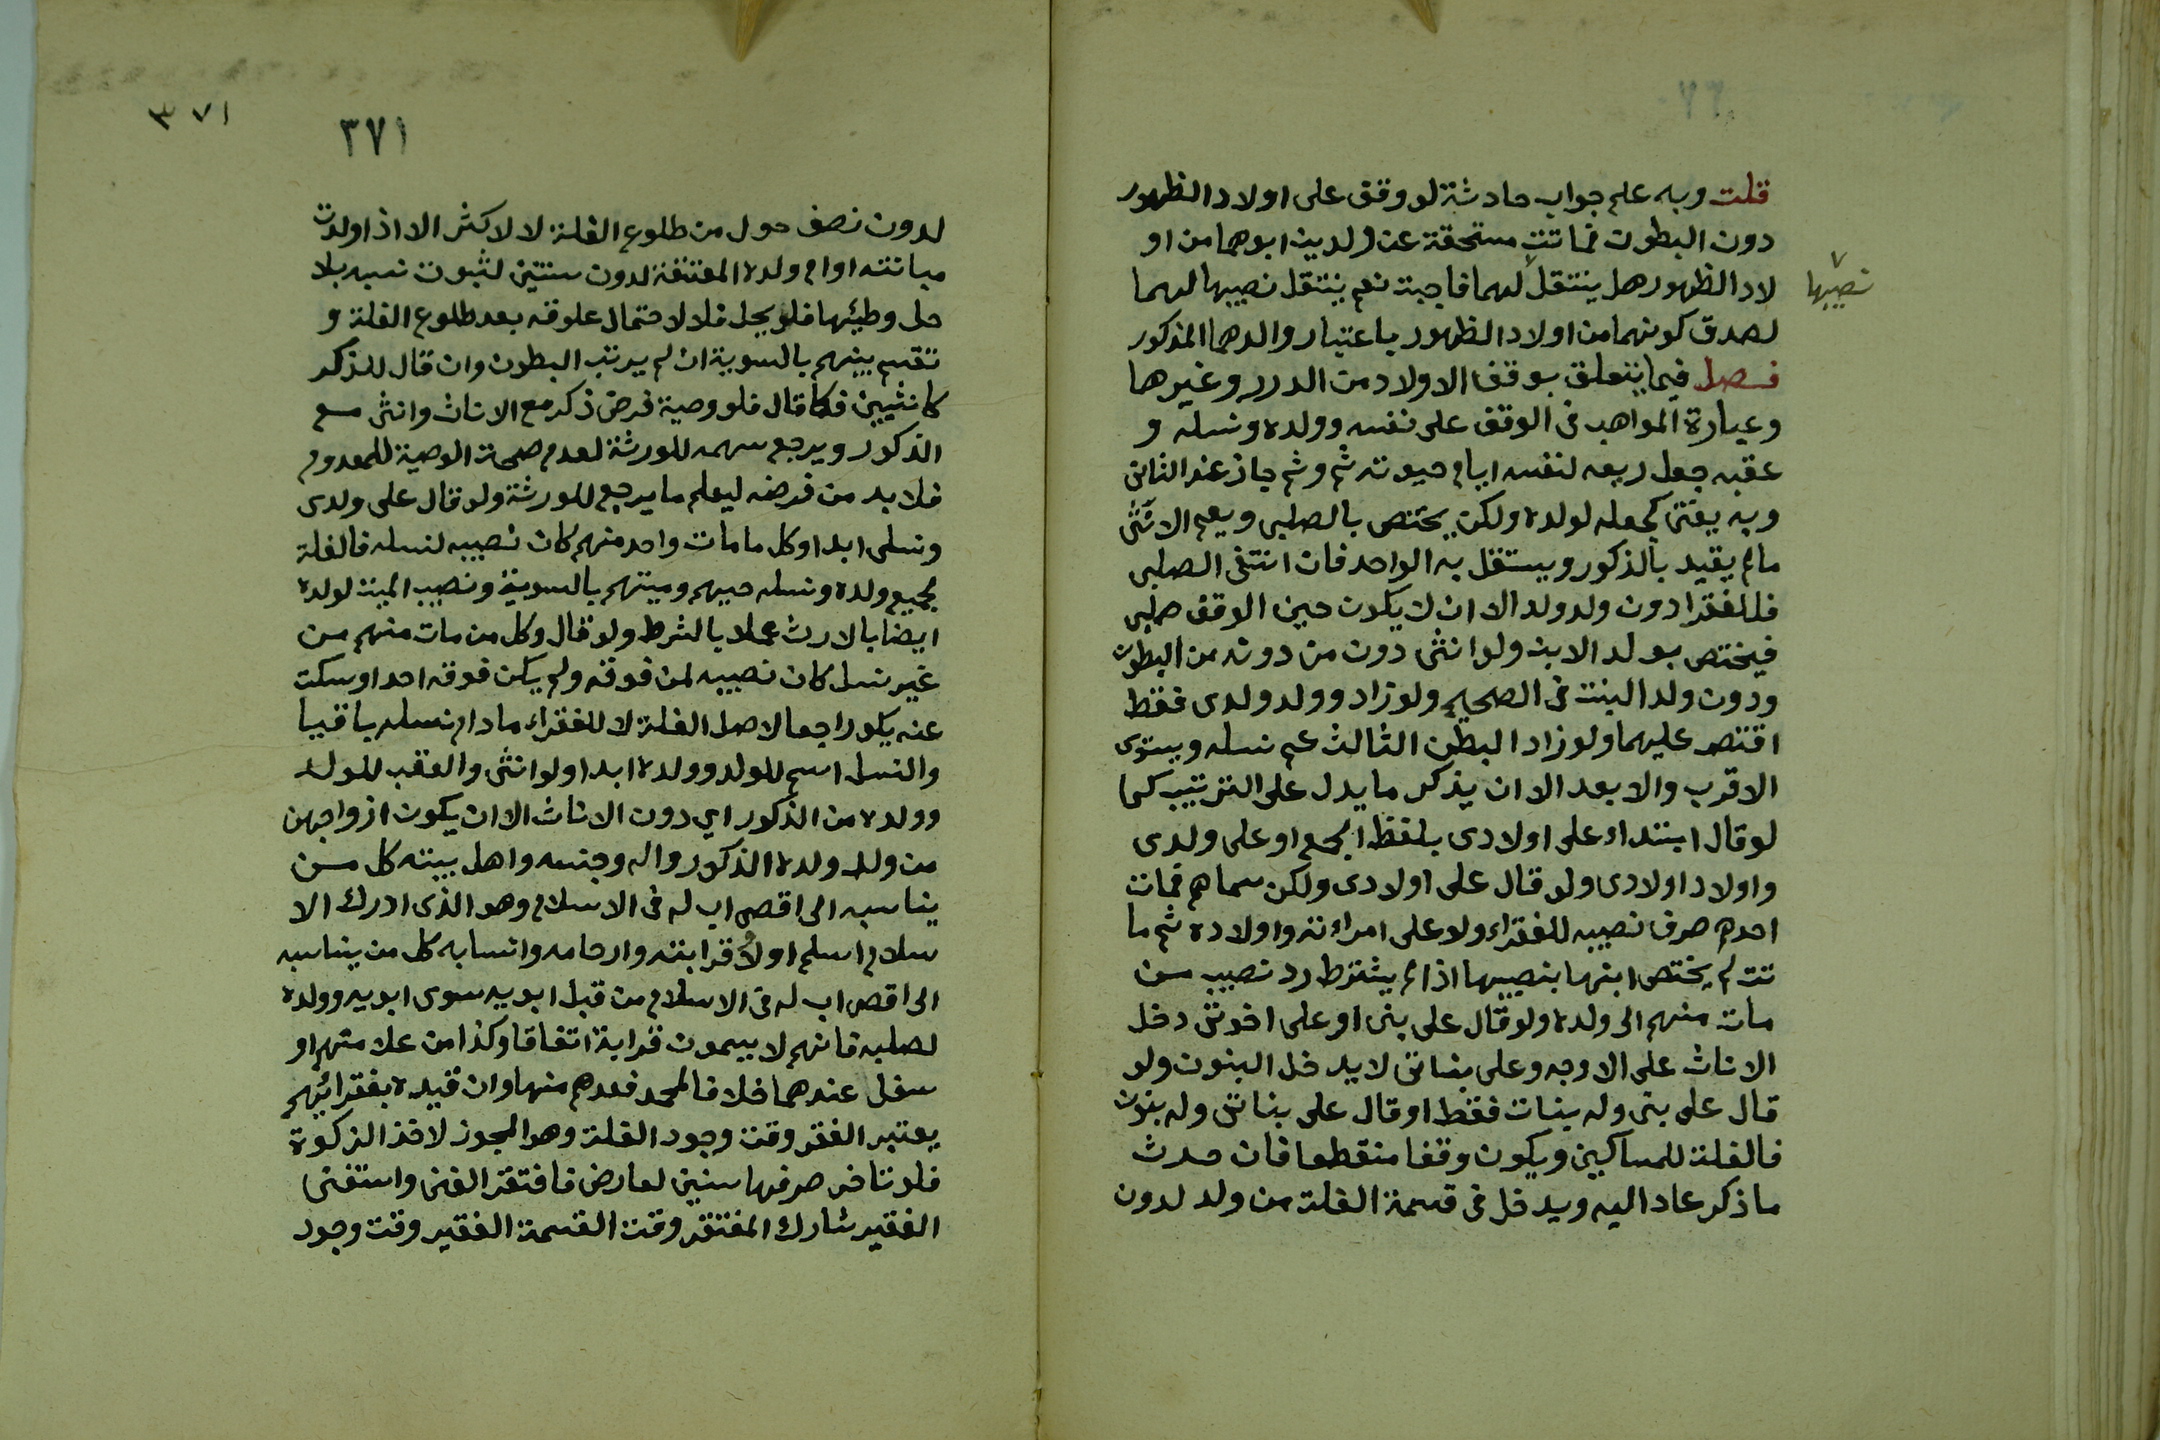 قلت وبه علم جواب حادثة لو وقف على اولاد الظهور
دون البطون فماتت مستحقة عن ولدين ابوهما من او
لاد الظهور هل ينتقل لهما فاجبت نعم ينتقل نصيبها لهما
نصيبها
لصدق كونهما من اولاد الظهور باعتبار والدهما المذكور
فصل فيما يتعلق بوقف الاولاد من الدرر وغيرها
وعبارة المواهب فى الوقف على نفسه وولده ونسله و
عقبه جعل ريعه لنفسه ايام حيوته ثم وثم جاز عند الثانى
وبه يفتى كجعله لولده ولكن يختص بالصلبى ويعم الانثى
ما لم يقيد بالذكور ويستقل به الواحد فان انتفى الصلبى
فللفقرا دون ولد ولد الا ان لا يكون حين الوقف صلبى
فيختص بولد الابن ولو انثى دون من دونه من البطون
ودون ولد البنت فى الصحيح ولو زاد وولد ولدى فقط
اقتصر عليهما ولو زاد البطن الثالث عم نسله ويستوى
الاقرب والابعد الا ان يذكر ما يدل على الترتيب كما
لو قال ابتداء على اولادى بلفظ الجمع او على ولدى
واولاد اولادى ولو قال على اولادى ولكن سماهم فمات
احدهم صرف نصيبه للفقراء ولو على امراته واولاده ثم ما
تت لم يختص ابنها بنصيبها اذا لم يشترط رد نصيب من
مات منهم الى ولده ولو قال على بنى او على اخوتى دخل
الاناث على الاوجه وعلى بناتى لا يدخل البنون ولو
قال على بنى وله بنات فقط او قال على بناتى وله بنون
فالغلة للمساكين ويكون وقفا منقطعا فان حدث
ما ذكر عاد اليه ويدخل فى قسمة الغلة من ولد لدون
٣٧١
٣٧١
لدون نصف حول من طلوع الغلة لا لاكثر الا اذا ولدت
مبانته او ام ولده المعتقة لدون سنتين لثبوت نسبه بلا
حل وطئها فلو يحل فلا لاحتمال علوقه بعد طلوع الغلة و
تقسم بينهم بالسوية ان لم يرتب البطون وان قال للذكر
كانثيين فكما قال فلو وصية فرض ذكر مع الاناث وانثى مع
الذكور ويرجع سهمه للورثة لعدم صحة الوصية للمعدوم
فلا بد من فرضه ليعلم ما يرجع للورثة ولو قال على ولدى
ونسلى ابدا وكل ما مات واحد منهم كان نصيبه لنسله فالغلة
لجميع ولده ونسله حيهم وميتهم بالسوية ونصيب الميت لولده
ايضا بالارث عملا بالشرط ولو قال وكل من مات منهم من
غير نسل كان نصيبه لمن فوقه ولم يكن فوقه احد او سكت
عنه يكون راجعا لاصل الغلة لا للفقراء ما دام نسله باقيا
والنسل اسم للولد وولده ابدا ولو انثى والعقب للولد
وولده من الذكور اي دون الاناث الا ان يكون ازواجهن
من ولد ولده الذكور واله وجنسه واهل بيته كل من
يناسبه الى اقصى اب له فى الاسلام وهو الذى ادرك الا
سلام اسلم او لا وقرابته وارحامه وانسابه كل من يناسبه
الى اقصى اب له فى الاسلام من قبل ابويه سوى ابويه وولده
لصلبه فانهم لا يسمون قرابة اتفاقا وكذا من علا منهم او
سفل عندهما خلافا لمحمد فعدهم منها وان قيده بفقرائهم
يعتبر الفقر وقت وجود الغلة وهو المجوز لاخذ الزكوة
فلو تاخر صرفها سنين لعارض فافتقر الغنى واستغنى
الفقير شارك المفتقر وقت القسمة الفقير وقت وجود